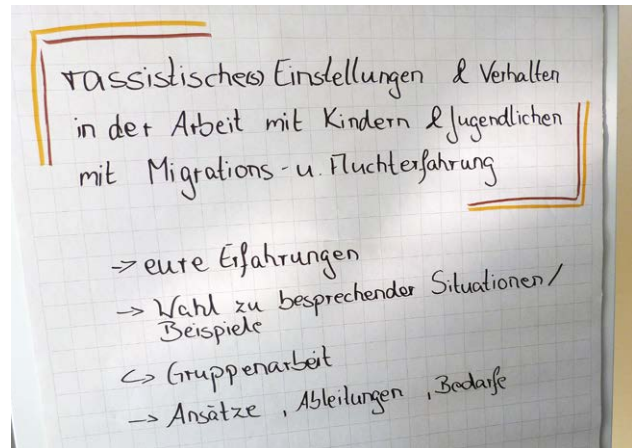 rassistische(s) Einstellungen & Verhalten
in der Arbeit mit Kindern & Jugendlichen
mit Migrations- u. Fluchterfahrung
→ eure Erfahrungen
→ Wahl zu besprechender Situationen/
Beispiele
↪ Gruppenarbeit
→ Ansätze, Ableitungen, Bedarfe